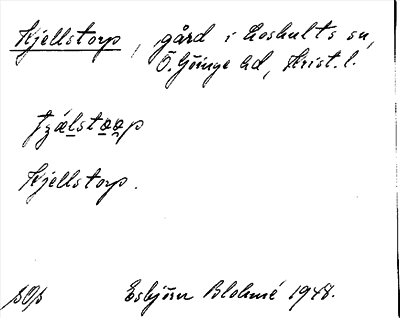 Kjellstorp, gård i Loshults sn,
Ö. Göinge hd, Krist. l.
Kjellstorp.
SOs Esbjörn Blohmé 1948.